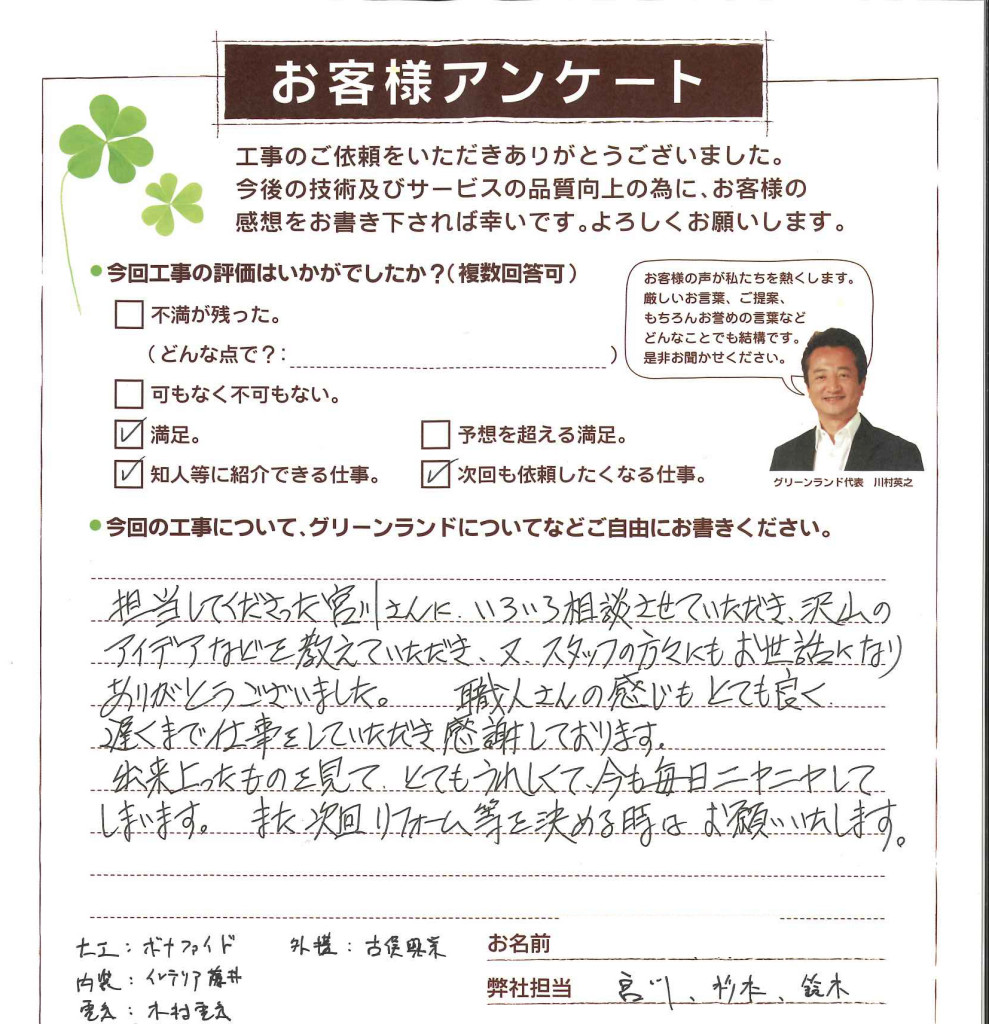 お客様アンケート
工事のご依頼をいただきありがとうございました。
今後の技術及びサービスの品質向上の為に、お客様の
感想をお書き下されば幸いです。よろしくお願いします。
●今回工事の評価はいかがでしたか?(複数回答可)
不満が残った。
(どんな点で?: )
可もなく不可もない。
満足。
予想を超える満足。
知人等に紹介できる仕事。
次回も依頼したくなる仕事。
お客様の声が私たちを熱くします。
厳しいお言葉、ご提案、
もちろんお誉めの言葉など
どんなことでも結構です。
是非お聞かせください。
グリーンランド代表 川村英之
●今回の工事について、グリーンランドについてなどご自由にお書きください。
担当してくださった宮川さんに、いろいろ相談させていただき、沢山の
アイデアなどを教えていただき、又、スタッフの方々にもお世話になり
ありがとうございました。 職人さんの感じもとても良く、
遅くまで仕事をしていただき感謝しております。
出来上ったものを見て、とてもうれしくて、今も毎日ニヤニヤして
しまいます。 また次回リフォーム等を決める時はお願いいたします。
大工:ボナファイド
外構:古俣興業
内装:インテリア藤井
電気:木村電気
お名前
弊社担当 宮川、杉本、鈴木